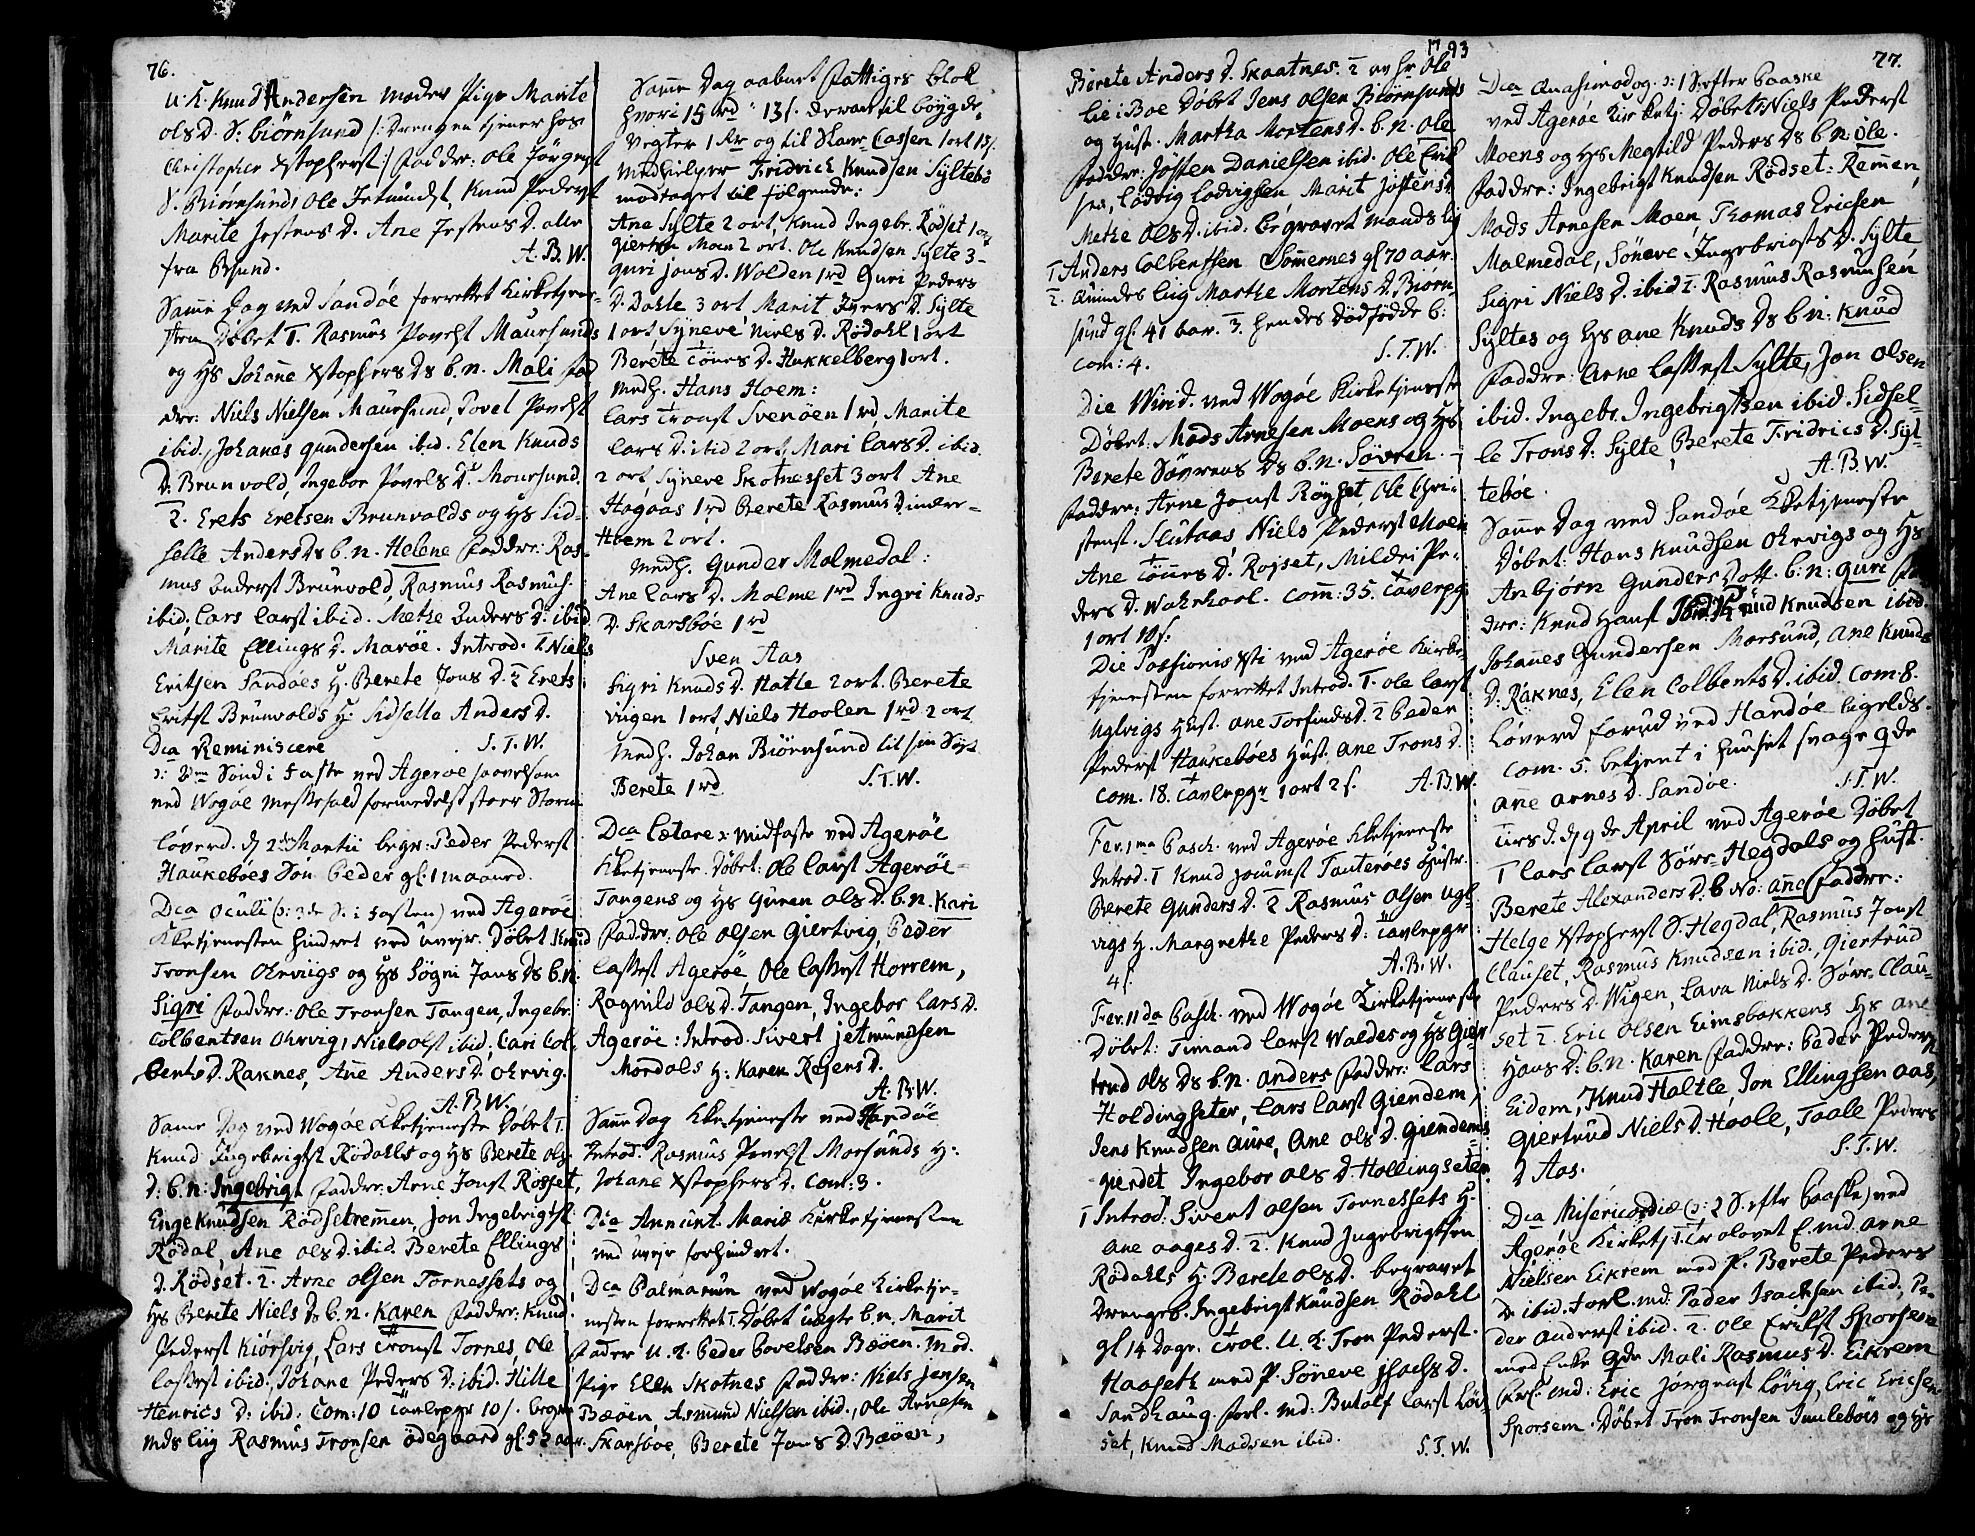 76.
U. K. Knud Andersen moder Pige Marite
Ols D. S: Biörnsund /: Drengen tjener hos
Christopher Xstopherss :/ fadder: Ole Jörgens
S. Biörnsund, Ole Jetmunds, Knud Peders
Marite Jostens D. Ane Jostens D. alle
fra Bsund. A. B. W.
Same Dag ved Sandöe forrettet Kirketjene-
sten Döbet 1. Rasmus Povels Maursunds
og Hs Johane Xstophers Ds b. n. Mali fad
dre: Niels Nielsen Maursund, Povel Povels
ibid. Johanes Gundersen ibid. Elen Knuds
D. Brunvold, Ingebor Povels D. Moursund.
2. Erets Eretsen Brunvolds og Hs Sid-
selle Anders Ds b. n. Helene faddre: Ras-
mus Anders Brunvold, Rasmus Rasmus
ibid, Lars Lars ibid. Methe Anders D. ibid
Marite Ellings D. Maröe. Introd. 1. Niels
Eritsen Sandöes H. Berete Jons D. 2. Erets
Erits Brunvolds H: Sidsella Anders D.
Dca Reminiscere S. T. W.
ɔ: 2den Sönd i Faste ved Ageröe saavelsom
ved Wogöe Messefald formedelst stoer Storm
Löverd. d 2den Martii begr: Peder Peders
Haukeböes Sön Peder gl: 1 maaned.
Dca Oculi (ɔ: 3de S. i Fasten) ved Ageröe
Kketjenesten hindret ved uvejr. Döbet Knud
Tronsen Ohrvigs og Hs Sögni Jons Ds b. n.
Sigri faddre: Ole Tronsen Tangen, Ingebr.
Colbentsen Ohrvig, Niels Ols ibid, Cari Col-
bents D. Raknes, Ane Anders D. Ohrvig.
A. B. W.
Same Dag ved Wogöe Kketjeneste Döbet 1.
Knud Ingebrigts Rödahls og Hs Berete Ols
D. b. n: Ingebrigt faddre: Arne Jons Rösset,
Enge Knudsen Rödsetremen, Jon Ingebrigts
Rödal, Ane Ols D. ibid. Berete Ellings
D. Rödset. 2. Arne Olsen Tornessets og
Hs Berete Niels Ds b. n. Karen faddre: Knud
Peders Kiörsvig, Lars Trons Tornes, Ole
Lasses ibid, Johane Peders D. ibid. Hille
Henrics D: ibid. Com: 10 Tavlepgr 10 s. begr:
Mds Liig Rasmus Tronsen Ödegaard gl: 53 aar.
Same Dag aabnet Fattiges Blok
hvori 15 rd " 13 s. deraf til böygde-
Vogter 1 Rr og til Skarr Cassen 1 ort 13 s.
Medhielper Fridrich Knudsen Sylteböe
modtaget til fölgende:
Ane Sylte 2 ort, Knud Ingebr. Rödset 1 ort
Giertru Moen 2 ort. Ole Knudsen Sylte 3 -
Guri Jons D. Wolden 1 rd Guri Peders
D. Dahle 3 ort, Marit Ivers D. Sylte
1 ort, Syneve Niels D. Rödahl 1 ort
Berete Tönes D. Hukkelberg 1 ort.
Medh. Hans Hoem:
Lars Trons Svenöen 1 rd, Marite
Lars D. ibid 2 ort, Mari Lars D. ibid.
2 ort, Syneve Skotnesset 3 ort Ane
Hagaas 1 rd Berete Rasmus D. indre-
Hoem 2 ort.
Medh. Gunder Malmedal:
Ane Lars D. Malme 1 rd Ingri Knuds
D. Skarsböe 1 rd
Sven Aas
Sigri Knuds D. Hatle 2 ort. Berete
Viigen 1 ort, Niels Hoolen 1 rd 2 ort
Medh. Johan Biörnsund til sin Söst
Berete 1 rd S. T. W.
Dca Lætare ɔ: Midfaste ved Ageröe
Kketjeneste. Döbet: Ole Lars Ageröe-
Tangens og Hs Guren Ols D. b. n. Kari
faddre: Ole Olsen Giertvig, Peder
Lasses Ageröe, Ole Lasses Horrem,
Ragnild Ols D. Tangen, Ingebor Lars D.
Ageröe: Introd. Sivert Jetmundsen
Mordals H: Karen Rejers D.
A. B. W.
Same Dag Kketjeneste ved Sandöe
Introd. Rasmus Povels Morsunds H:
Johane Xstophers D. Com: 3.
Die Annunt. Mariæ Kirketjenesten
ved uvejr forhindret.
Dca Palmarum ved Wogöe Kirketje-
nesten forrettet 1. Döbet uægte b. n. Marit
Fader U. K. Peder Povelsen Bæöen. Mod.
Pige Elen Skotnes faddre: Niels Jensen
Bæöen, Asmund Nielsen ibid., Ole Arnesen
Skarsböe, Berete Jons D. Bæöen,
1793
Berete Anders D. Skaatnes. 2 ... Ole
Lie i Boe Döbet Jens Olsen Biörnsunds
og Hust. Martha Mortens D. b. n. Ole
faddre: Josten Danielsen ibid. Ole Erik
sen, Lodvig Lodvigsen Marit Jostens D
Methe Ols D. ibid. begravet Mands Lig
1 Anders Colbentsen Somernes gl 70 aar.
2. Quindes Liig Marthe Mortens D. Biörn-
sund gl: 41 aar. 3. hendes Dödfödde b:
Com: 4. S. T. W.
Die Virid. ved Wogöe Kirketjeneste
Döbet: Mads Arnesen Moens og Hs
Berete Sövrens Ds b. n. Sövren.
faddre: Arne Jons Röyset, Ole Chri-
stens. Slutaas Niels Peders Moen
Ane Tönnes D. Rojset, Mildri Pe-
ders D. Wahrhool. Com: 35. Tavlepg:
1 ort 18 s.
Die Passionis Xsti ved Ageröe Kirke
tjenesten forrettet Introd. 1. Ole Lars
Uglvigs Hust. Ane Torfinds D. 2 Peder
Peders Haukeböes Hust. Ane Trons D.
Com. 18. Tavlepgr 1 ort 2 s. A. B. W.
Fer. 1ma Pasch. ved Ageröe Kketjeneste
Introd. 1 Knud Jomins Tauteröes Hustr.
Berete Gunders D. 2 Rasmus Olsen Ugl-
vigs H. Margrethe Peders D. Tavlepgr
4 s. A. B. W.
Fer. 11da Pasch. ved Wogöe Kirketjeneste
Döbet: Timand Lars Waldes og Hs Gier
trud Ols Ds b. n. Anders faddre: Lars
Holdingseter, Lars Lars Giendem,
Jens Knudsen Aure, Ane Ols D. Giendems
gierdet Ingebor Ols D. Hollingseter
1 Introd. Sivert Olsen Tornessets H.
Ane Aages D. 2. Knud Ingebrigtsen
Rödahls H. Berete Ols D. begravet
Drenges. Ingebrigt Knudsen Rödahl
gl 14 Dage. Trol. U. K. Tron Peders.
Haaseth med P. Söneve Isachs D.
Sandhaug. forl. Md: Butolf Lars Löv
set, Knud Madsen ibid. S. T. W.
77.
Dca Quasimodog. ɔ: 1 S. efter Paaske
ved Ageröe Kirketj: Döbet 1 Niels Peders
Moens og Hs Megtild Peders Ds b. n: Ole.
faddre: Ingebrigt Knudsen Rödset: Remen,
Mads Arnesen Moen, Thomas Ericsen
Malmedal, Söneve Ingebrigts D. Sylte
Sigri Niels D. ibid 2. Rasmus Rasmusen
Syltes og Hs Ane Knuds Ds b. n: Knud
faddre: Arne Lasses Sylte, Jon Olsen
ibid. Ingebr. Ingebrigtsen ibid. Sidsel-
le Trons D. Sylte, Berete Fridrics D. Syl-
teböe. A. B. W.
Same Dag ved Sandöe Kketjeneste
Döbet: Hans Knudsen Ohrvigs og Hs
Anbjörn Gunders Dott. b. n: Guri fa
dre: Knud Hans ibid Knud Knudsen ibid
Johanes Gundersen Morsund, Ane Knuds
D. Raknes, Elen Colbents D. ibid. Com. 8.
Löverd. forud ved Sandöe ligelds.
Com. 5. betjent i Huuset svage qde
Ane Arnes D. Sandöe. S. T. W.
Tirsd. d. 9de April ved Ageröe Döbet
1 Lars Lars Sörr-Hegdals og Hust.
Berete Alexanders D. b No: Ane faddre:
Helge Xstophers S. Hegdal, Rasmus Jons
Clauset, Rasmus Knudsen ibid., Giertrud
Peders D. Wigen, Lava Niels D. Sörr-Clau-
set 2. Eric Olsen Eimsbakkens Hs Ane
Hans D: b. n. Karen faddre: Peder Peders
Eidem, Knud Haltle, Jon Ellingsen Aas,
Giertrud Niels D. Hoole, Taale Peders
D Aas. S. T. W.
Dca Misericordiæ (ɔ: 2 S. eftr Paaske) ved
Ageröe Kirketj. 1 Trolovet E. md. Arne
Nielsen Eikrem med P. Berete Peders
D. ibid. forl. md. Peder Isachsen ibid, Pe-
der Anders ibid. 2. Ole Eriks Sporsem
med Enke Qde Mali Rasmus D. Eikrem
forl: md: Eric Jörgens Lövig, Eric Ericsen
Sporsem. Döbet Tron Tronsen Juuleböes og Hs